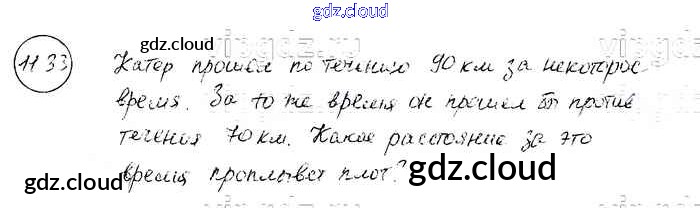 gdz.cloud
gdz.cloud vipgdz
1133 Катер прошёл по течению 90 км за некоторое
время. За то же время он прошёл бы против
течения 70 км. Какое расстояние за это
время проплывёт плот?
gdz.cloud gdz.cloud
gdz.cloud